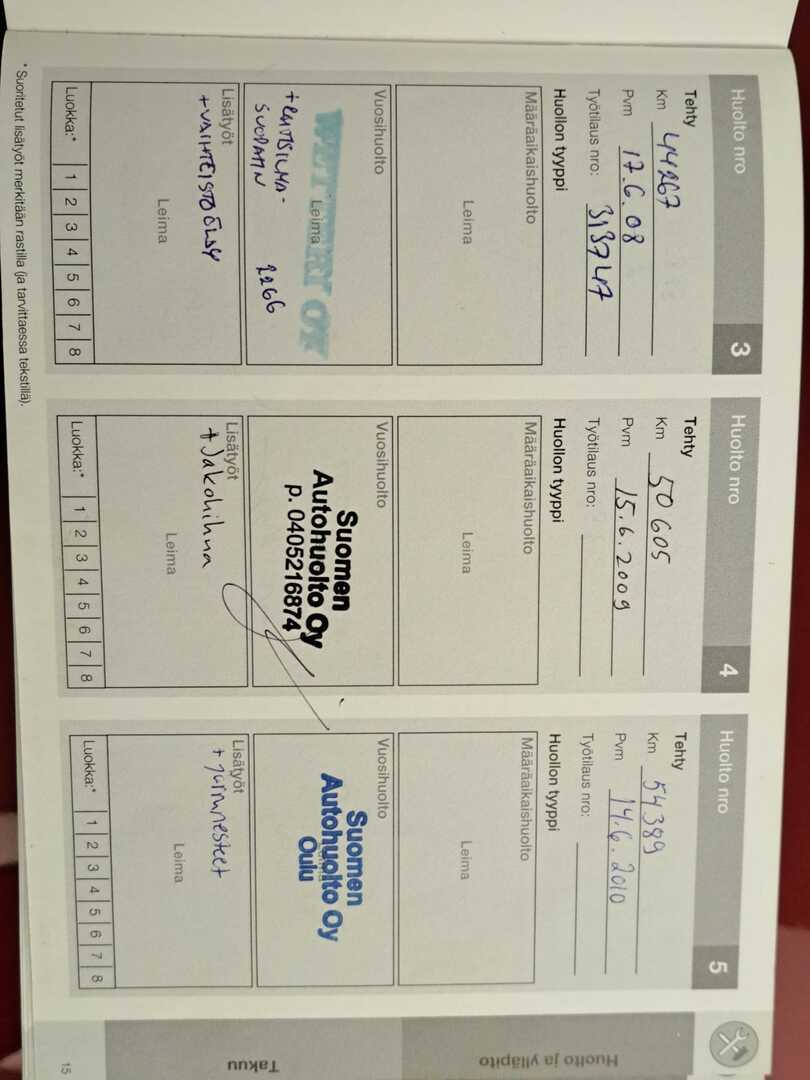 Huolto nro 3
Tehty
Km 44267
Pvm 17.6.08
Työtilaus nro: 313747
Huollon tyyppi
Määräaikaishuolto
Leima
Vuosihuolto
Leima
OY
2266
Lisätyöt
+ VAIHTEISTOÖLJY
Leima
Luokka:* 1 2 3 4 5 6 7 8
Huolto nro 4
Tehty
Km 50605
Pvm 15.6.2009
Työtilaus nro:
Huollon tyyppi
Määräaikaishuolto
Leima
Vuosihuolto
Suomen
Autohuolto Oy
p. 0405216874
Lisätyöt
+ Jakohihna
Leima
Luokka:* 1 2 3 4 5 6 7 8
Huolto nro 5
Tehty
Km 54389
Pvm 14.6.2010
Työtilaus nro:
Huollon tyyppi
Määräaikaishuolto
Leima
Vuosihuolto
Suomen
Autohuolto Oy
Oulu
Lisätyöt
+ jarrunesteet
Leima
Luokka:* 1 2 3 4 5 6 7 8
* Suoritetut lisätyöt merkitään rastilla (ja tarvittaessa tekstillä).
Huolto ja ylläpito
Takuu
15